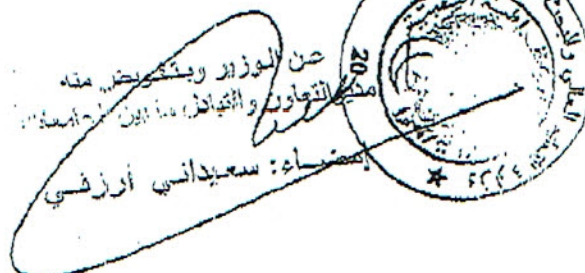 عن الوزير وبتفويض منه
مدير التعاون والتبادل ما بين الجامعات
إمضاء: سعيداني أرزقي
20